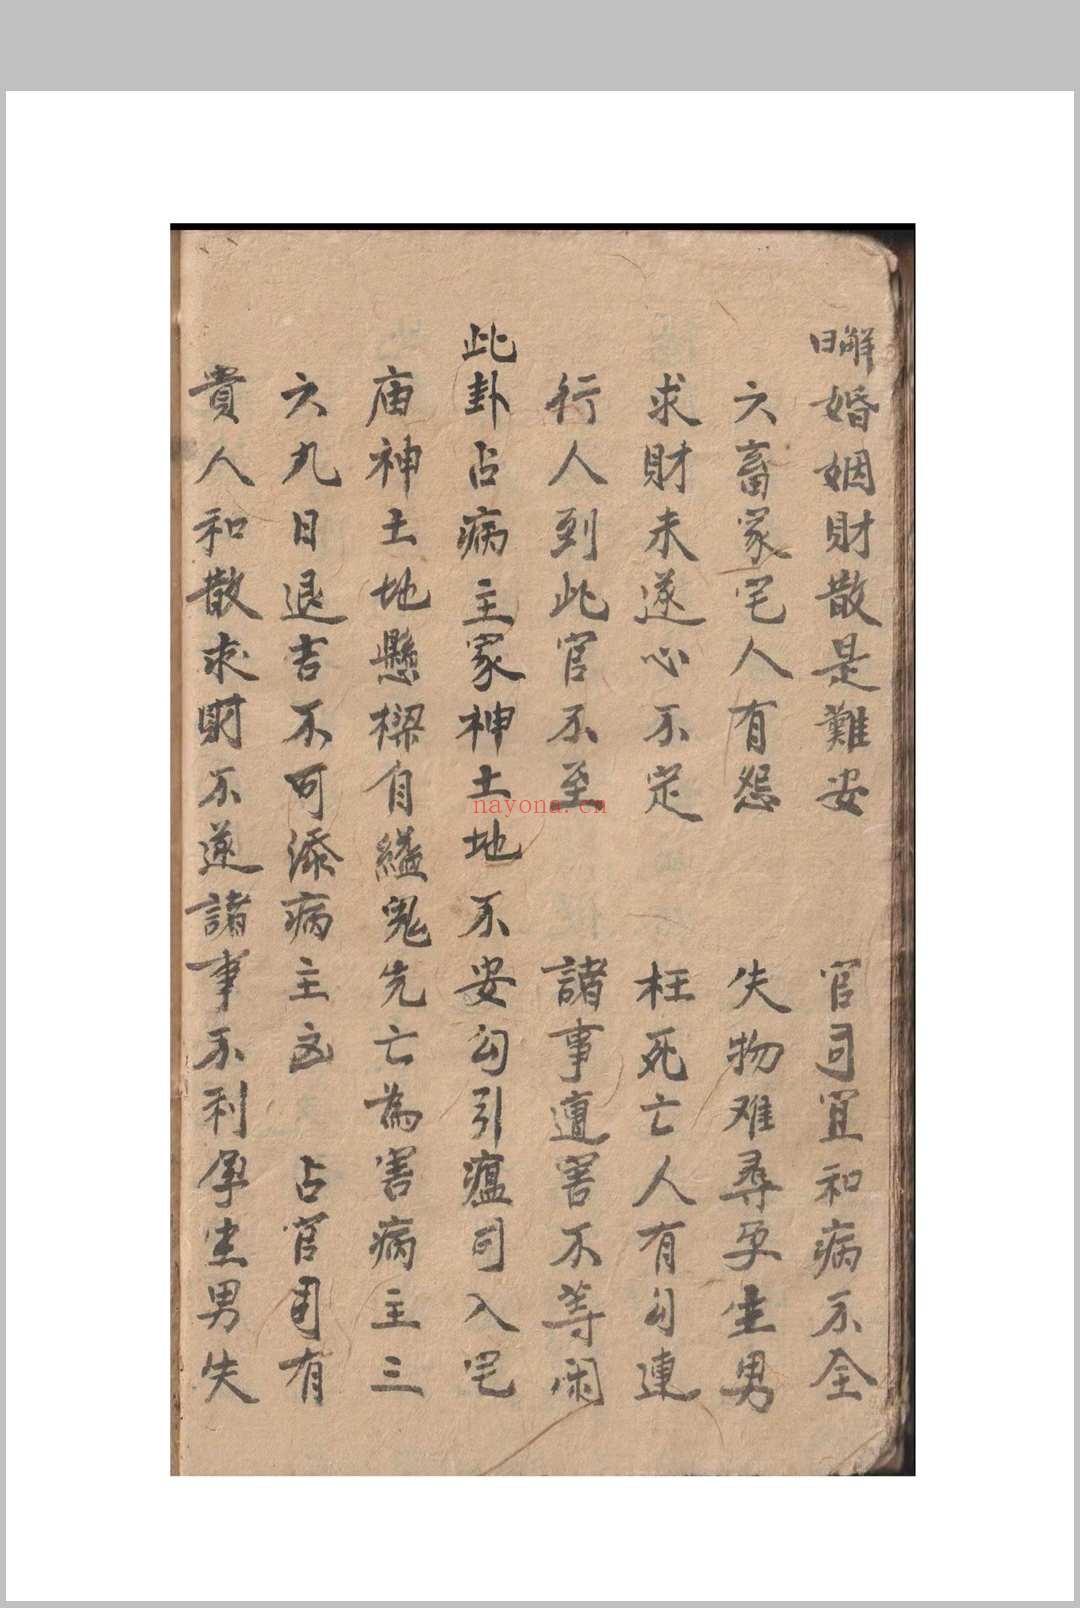 解曰婚姻財散是難安　官司宜和病不全
六畜家宅人有怨　失物难尋孕生男
求財未遂心不定　枉死亡人有勾連
行人到此官不至　諸事遭害不等闲
此卦占病主家神土地不安勾引瘟司入宅
庙神土地懸樑自縊鬼先亡為害病主三
六九日退吉不可添病主凶　占官司有
貴人和散求財不遂諸事不利孕生男失
nayona.cn